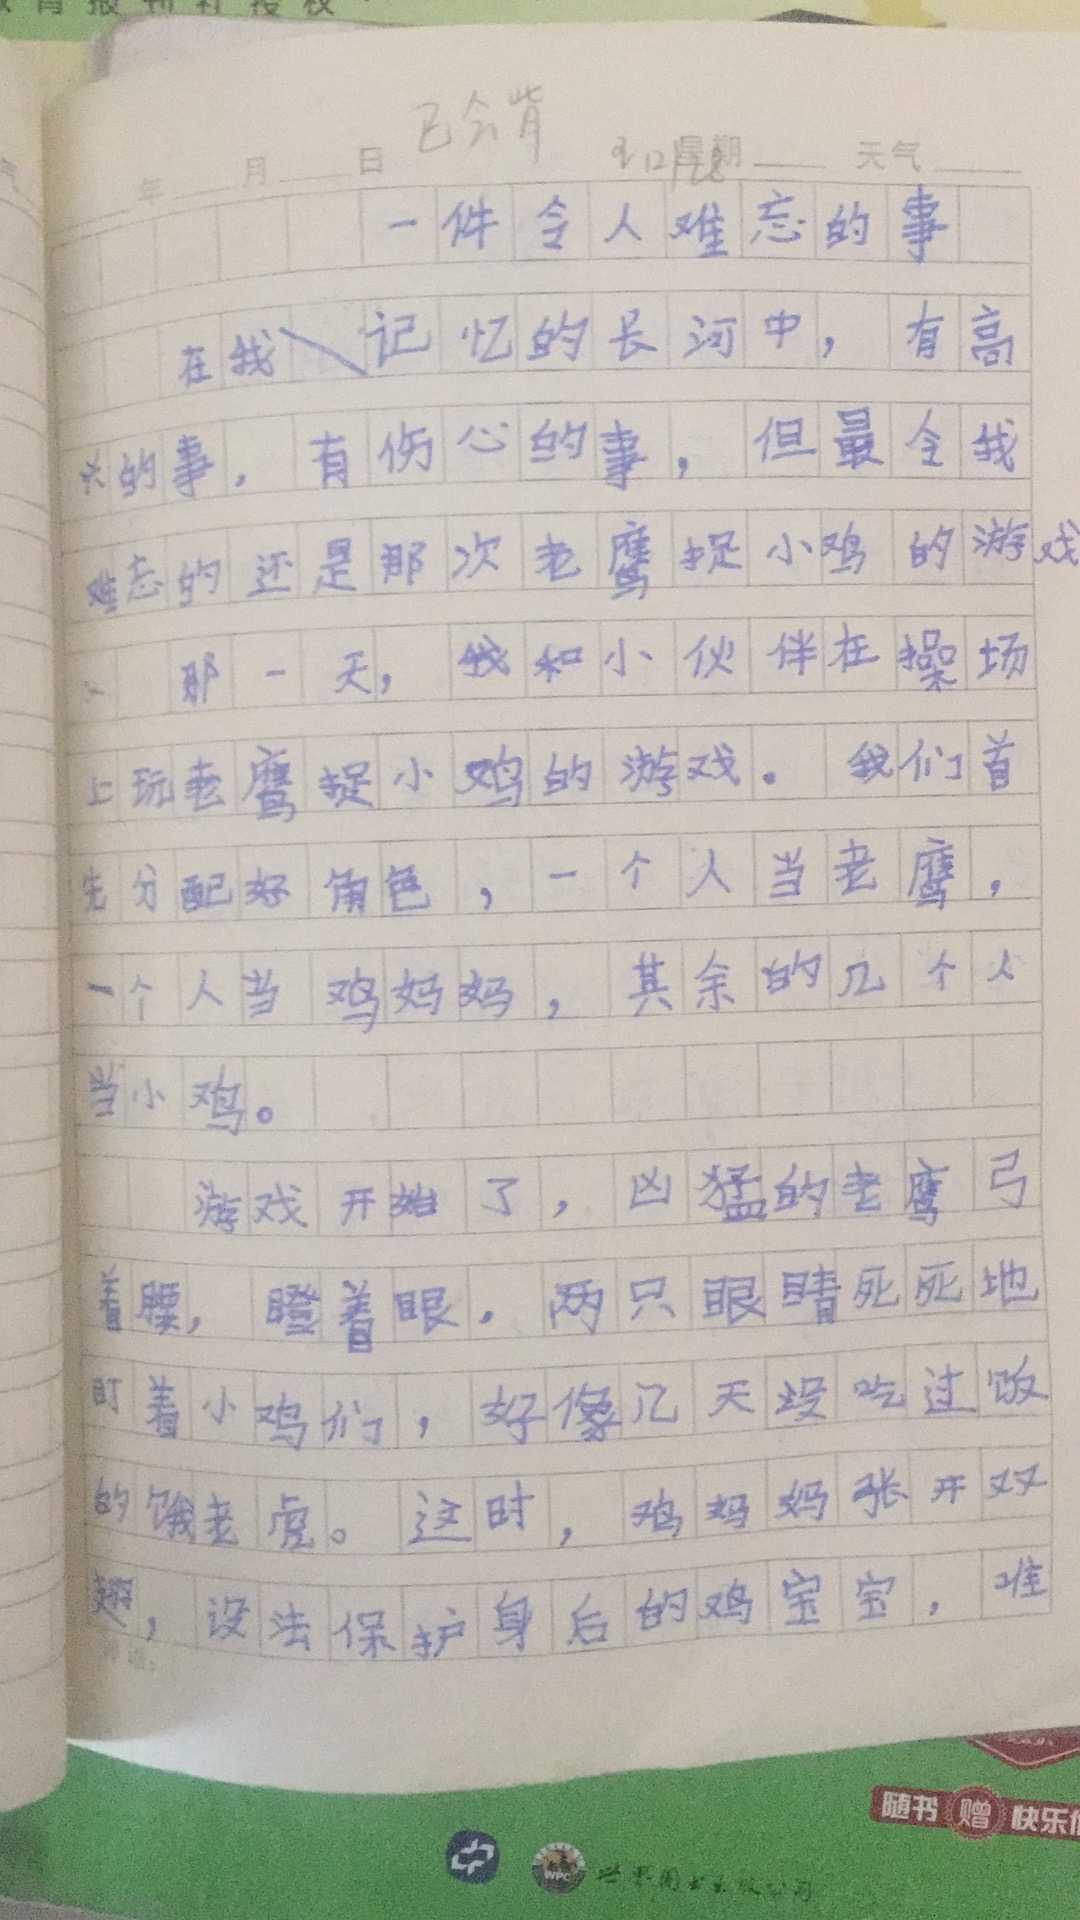 教育报刊社授权
已会背
年 月 日 12/28 星期 天气
一件令人难忘的事
在我记忆的长河中，有高
兴的事，有伤心的事，但最令我
难忘的还是那次老鹰捉小鸡的游戏
。 那一天，我和小伙伴在操场
上玩老鹰捉小鸡的游戏。我们首
先分配好角色，一个人当老鹰，
一个人当鸡妈妈，其余的几个人
当小鸡。
游戏开始了，凶猛的老鹰弓
着腰，瞪着眼，两只眼睛死死地
盯着小鸡们，好像几天没吃过饭
的饿老虎。这时，鸡妈妈张开双
翅，设法保护身后的鸡宝宝，唯
随书赠 快乐
WPC 世界图书出版公司